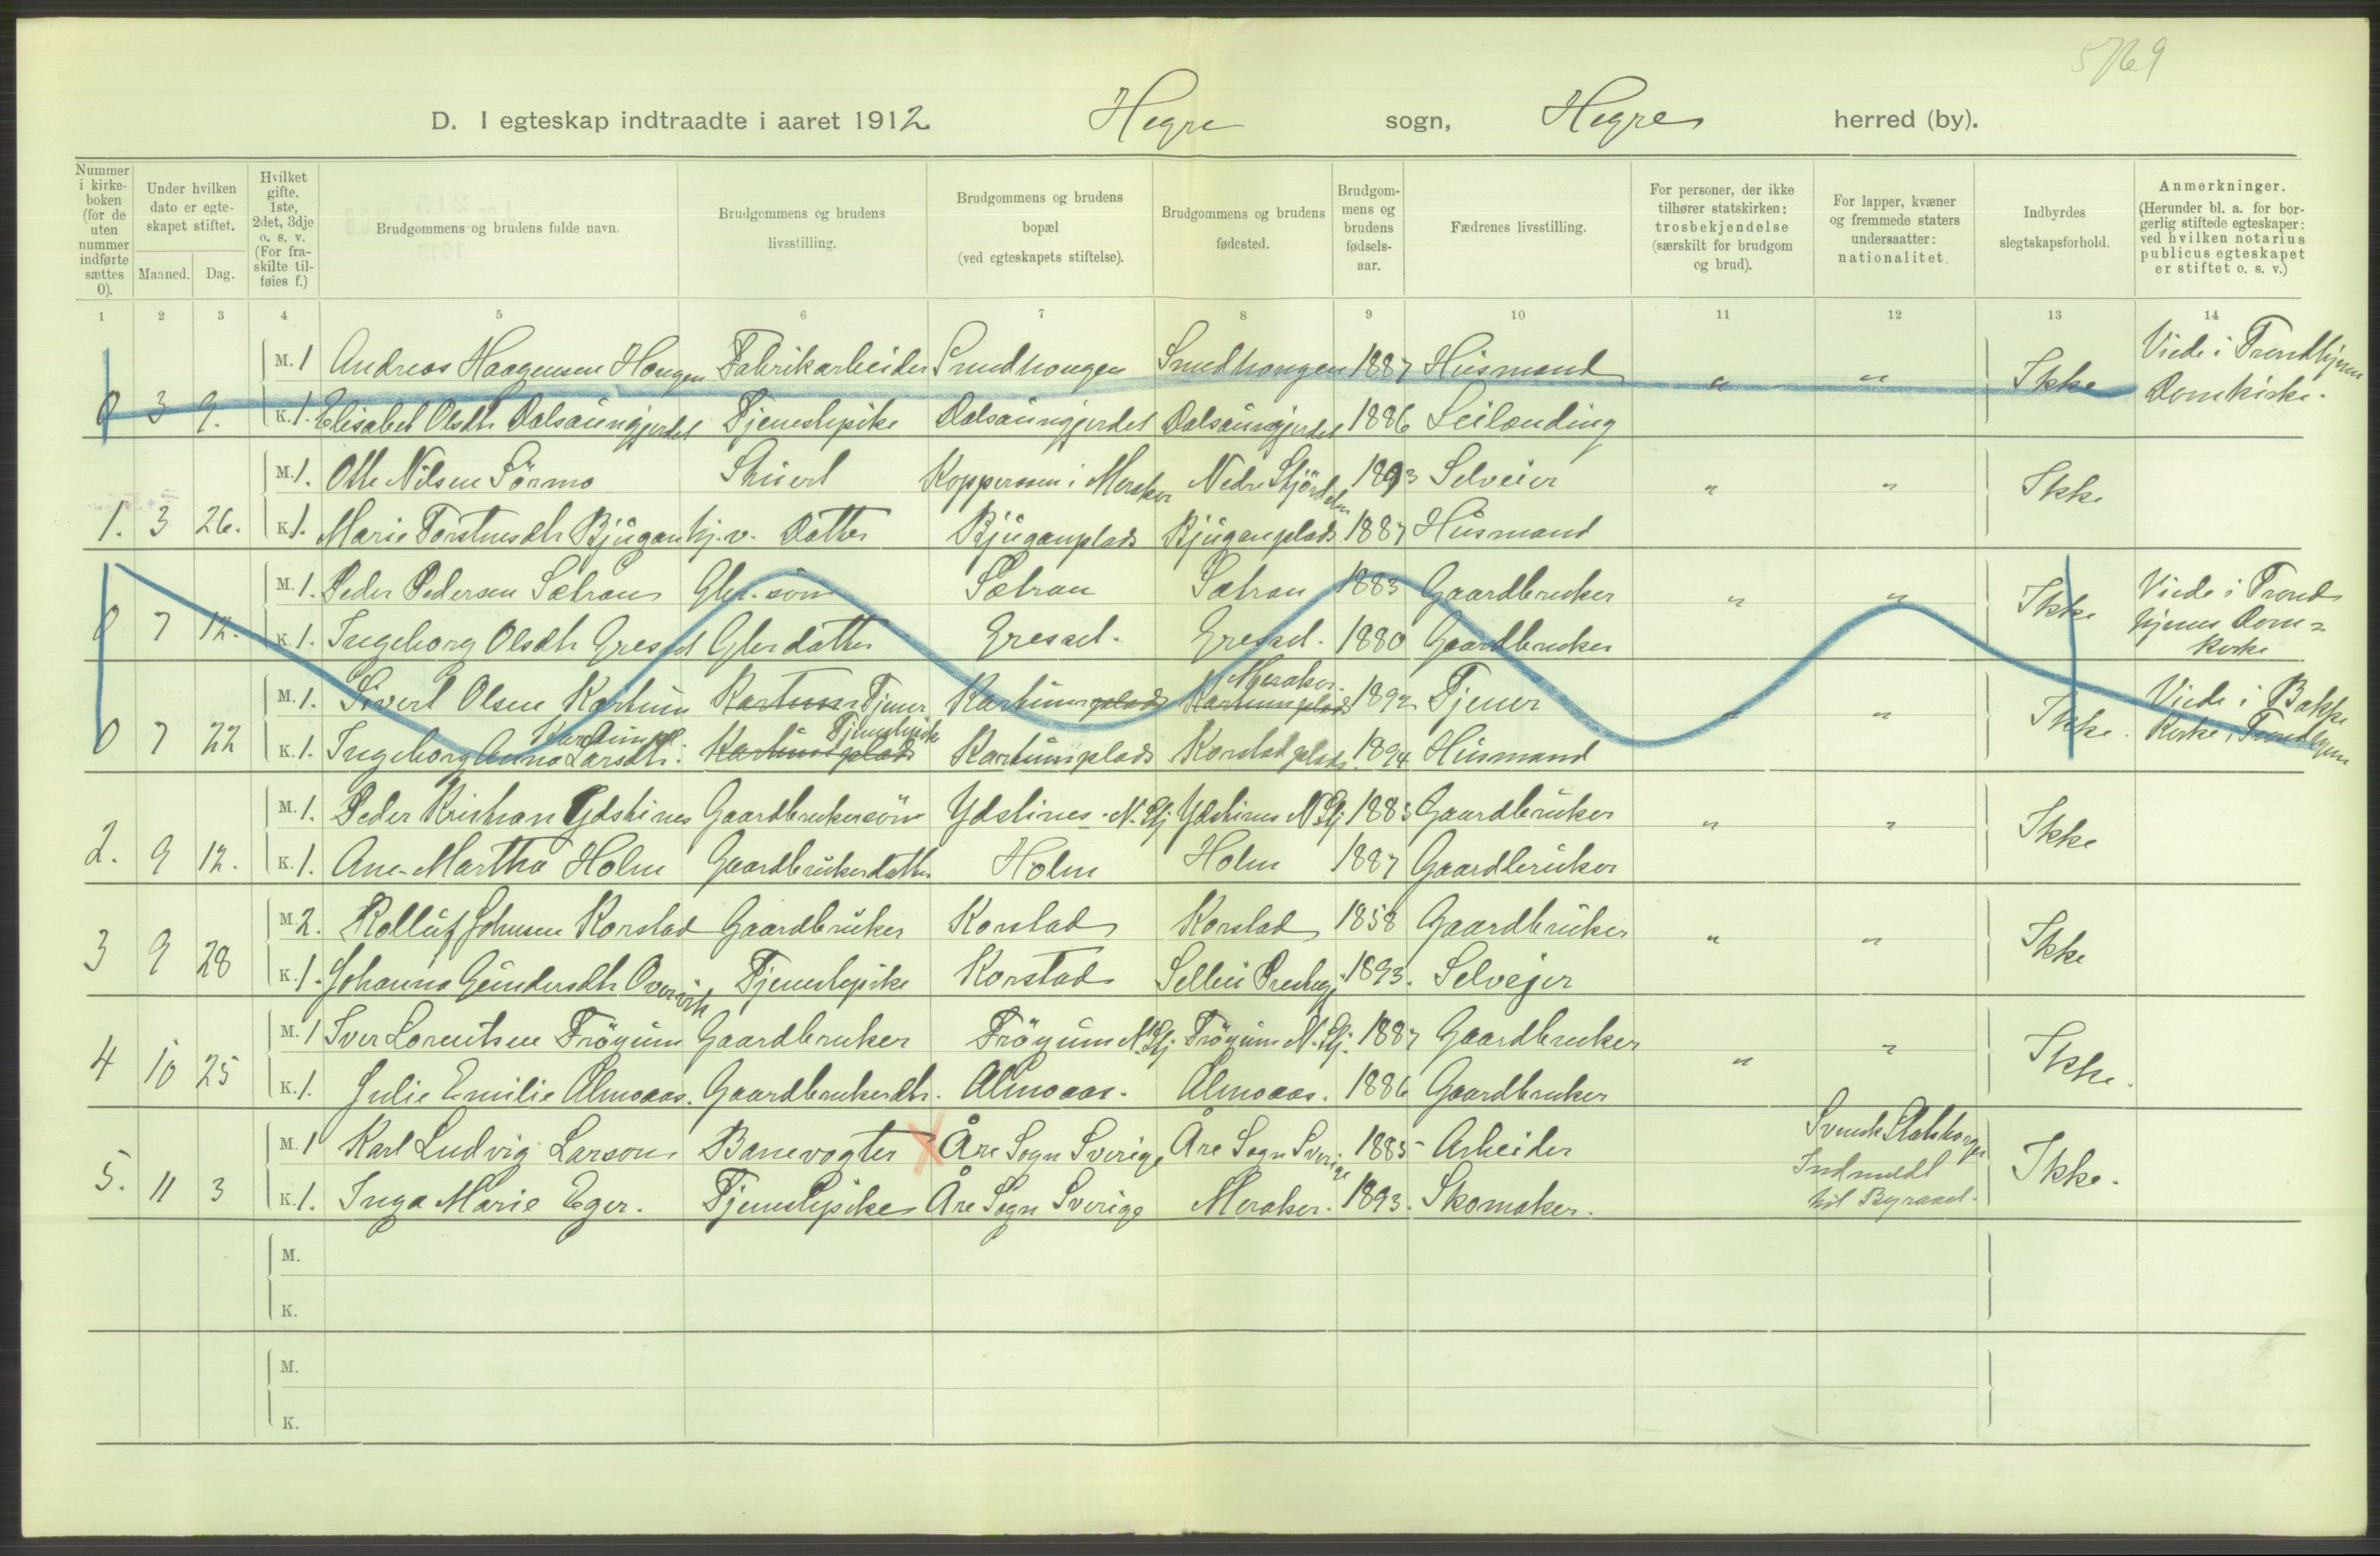 5769
D. I egteskap indtraadte i aaret 1912 Hegre sogn, Hegre herred (by).
Nummer i kirkeboken (for de uten nummer indførte sættes 0).
Under hvilken dato er egteskapet stiftet.
Maaned. Dag.
Hvilket gifte. 1ste, 2det, 3dje o. s. v. (For fraskilte tilføies f.)
Brudgommens og brudens fulde navn.
Brudgommens og brudens livsstilling.
Brudgommens og brudens bopæl (ved egteskapets stiftelse).
Brudgommens og brudens fødested.
Brudgommens og brudens fødselsaar.
Fædrenes livsstilling.
For personer, der ikke tilhører statskirken: trosbekjendelse (særskilt for brudgom og brud).
For lapper, kvæner og fremmede staters undersaatter: nationalitet.
Indbyrdes slegtskapsforhold.
Anmerkninger. (Herunder bl. a. for borgerlig stiftede egteskaper: ved hvilken notarius publicus egteskapet er stiftet o. s. v.)
1 2 3 4 5 6 7 8 9 10 11 12 13 14
M. 1 Andreas Haagensen Hougen Fabrikarbeider Smedhougen Smedhougen 1887 Húsmand " " Ikke Viede i Trondhjems Domkirke.
0 3 9. K. 1. Elisabet Olsdtr Dalsaunegjerdet Tjenestepike Dalsaunegjerdet Dalsaunegjerdet 1886 Leilending
M. 1. Otte Nilsen Sörmo Stúert Kopperaaen i Meraker Nedre Stjördalen 1893 Selveier " " Ikke
1. 3 26. K. 1. Marie Torstensdtr Bjúgan hj. v. Datter Bjúganplads Bjúganplads 1887 Húsmand
M. 1. Peder Pedersen Sætran Gbr. sön Sætran Sætran 1883 Gaardbruker " " Ikke Viede i Trondhjems Domkirke
0 7 12. K. 1. Ingeborg Olsdtr Gressel Gbr datter Gressel. Gressel. 1880 Gaardbruker
M. 1. Sivert Olsen Kartúm Kartúm Tjener Kartúmsplads Kartúmsplads Meraker. 1892 Tjener " " Ikke. Viede i Bakke Kirke, Trondhjem
0 7 22 K. 1. Ingeborg Anna Larsdtr. Kartúmspl Kartúmsplads Tjenestepike Kartúmsplads Korstadplads. 1894 Húsmand
M. 1. Peder Kristian Ydstines Gaardbrukersön Ydstines. N. Stj Ydstines N Stj. 1883 Gaardbrúker " " Ikke
2. 9 12. K. 1. Ane-Martha Holm Gaardbrúkerdatter Holm Holm 1887 Gaardbrúker
M. 2. Rolluf Johnsen Korstad Gaardbrúker Korstad Korstad 1858 Gaardbrúker " " Ikke
3 9 28 K. 1. Johanna Gúndersdtr Overvik Tjenestepike Korstad Selbú Prestegj. 1893. Selvejer
M. 1 Iver Lorentsen Fröyúm Gaardbruker Fröyúm N. Stj. Fröyúm N. Stj. 1887 Gaardbruker " " Ikke.
4 10 25 K. 1. Julie Emilie Almoaas. Gaardbrukerdtr. Almoaas. Almoaas. 1886 Gaardbruker
M. 1 Karl Ludvig Larson Banevogter Åre Sogn Sverige Åre Sogn Sverige 1885 Arbeider Svensk Statsborger Ikke.
5. 11 3 K. 1. Inga Marie Eger. Tjenestepike Åre Sogn Sverige Meraker. 1893. Skomaker. Indmeldt til Byraaet.
M.
K.
M.
K.